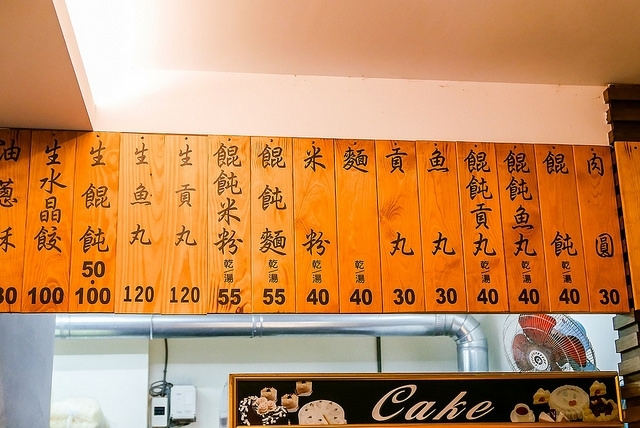 肉圓 30
餛飩 乾/湯 40
餛飩魚丸 乾/湯 40
餛飩貢丸 乾/湯 40
魚丸 30
貢丸 30
麵 乾/湯 40
米粉 乾/湯 40
餛飩麵 乾/湯 55
餛飩米粉 乾/湯 55
生貢丸 120
生魚丸 120
生餛飩 50 · 100
生水晶餃 100
油蔥酥
Cake